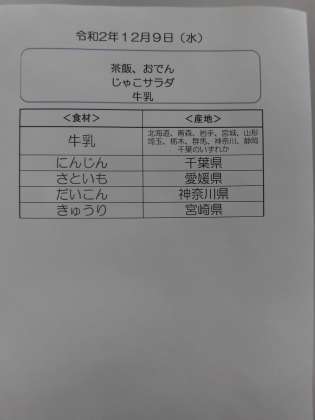 令和2年12月9日（水）
茶飯、おでん
じゃこサラダ
牛乳
＜食材＞ ＜産地＞
牛乳 北海道、青森、岩手、宮城、山形
埼玉、栃木、群馬、神奈川、静岡
千葉のいずれか
にんじん 千葉県
さといも 愛媛県
だいこん 神奈川県
きゅうり 宮崎県